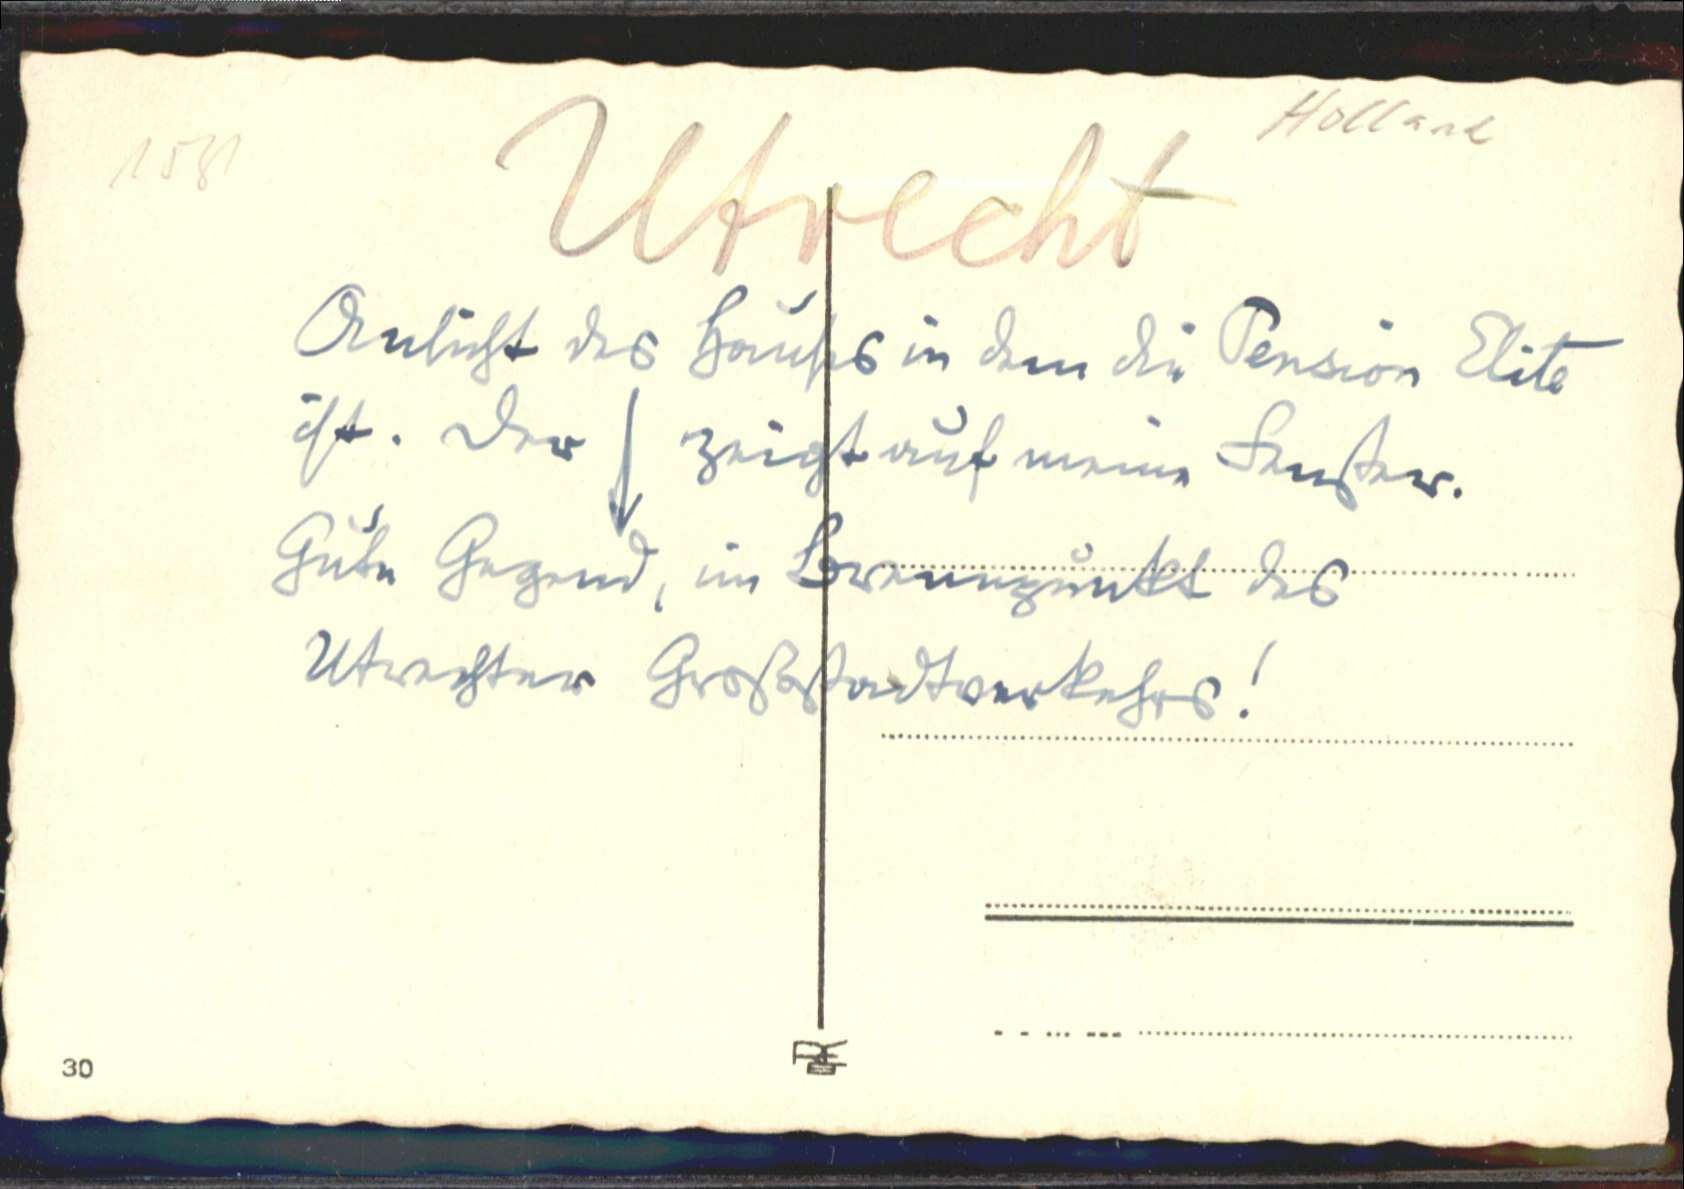 Holland
1581
Utrecht
Ansicht des Hauses in dem die Pension Elite
ist. Der ↓ zeigt auf meine Fenster.
Gute Gegend, im Brennpunkt des
Utrechter Großstadtverkehrs!
30